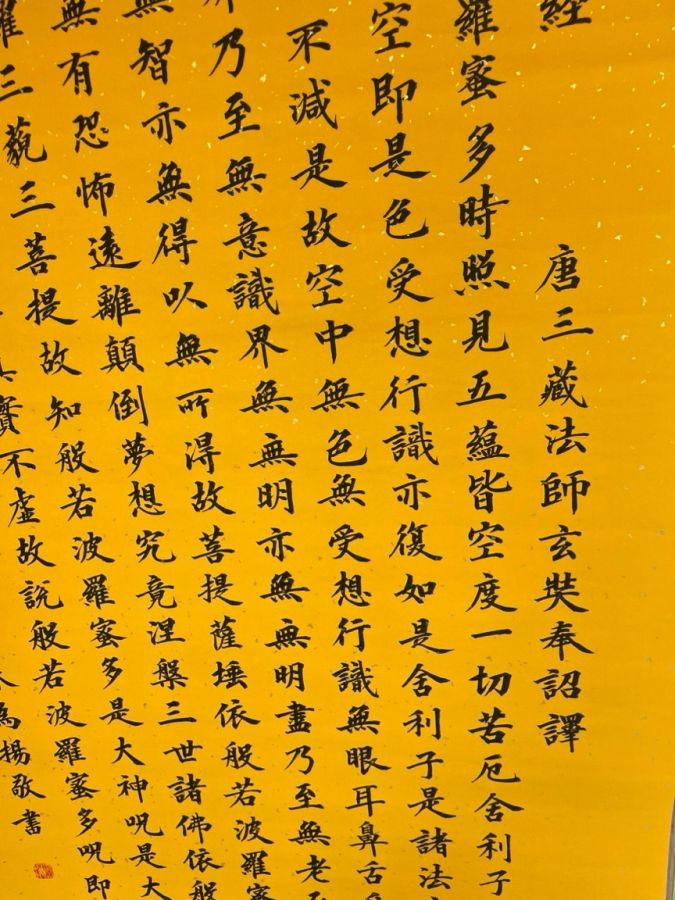 經 唐三藏法師玄奘奉詔譯
羅蜜多時照見五蘊皆空度一切苦厄舍利子
空即是色受想行識亦復如是舍利子是諸法
不減是故空中無色無受想行識無眼耳鼻舌
乃至無意識界無無明亦無無明盡乃至無老
無智亦無得以無所得故菩提薩埵依般若波羅蜜
無有恐怖遠離顛倒夢想究竟涅槃三世諸佛依般
羅三藐三菩提故知般若波羅蜜多是大神呪是大
實不虛故說般若波羅蜜多呪即
楊敬書